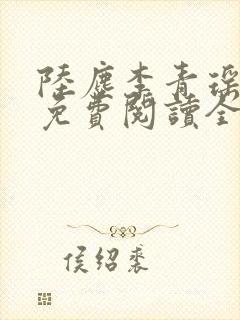 陸塵李青瑤
免費閱讀全
侯紹裘